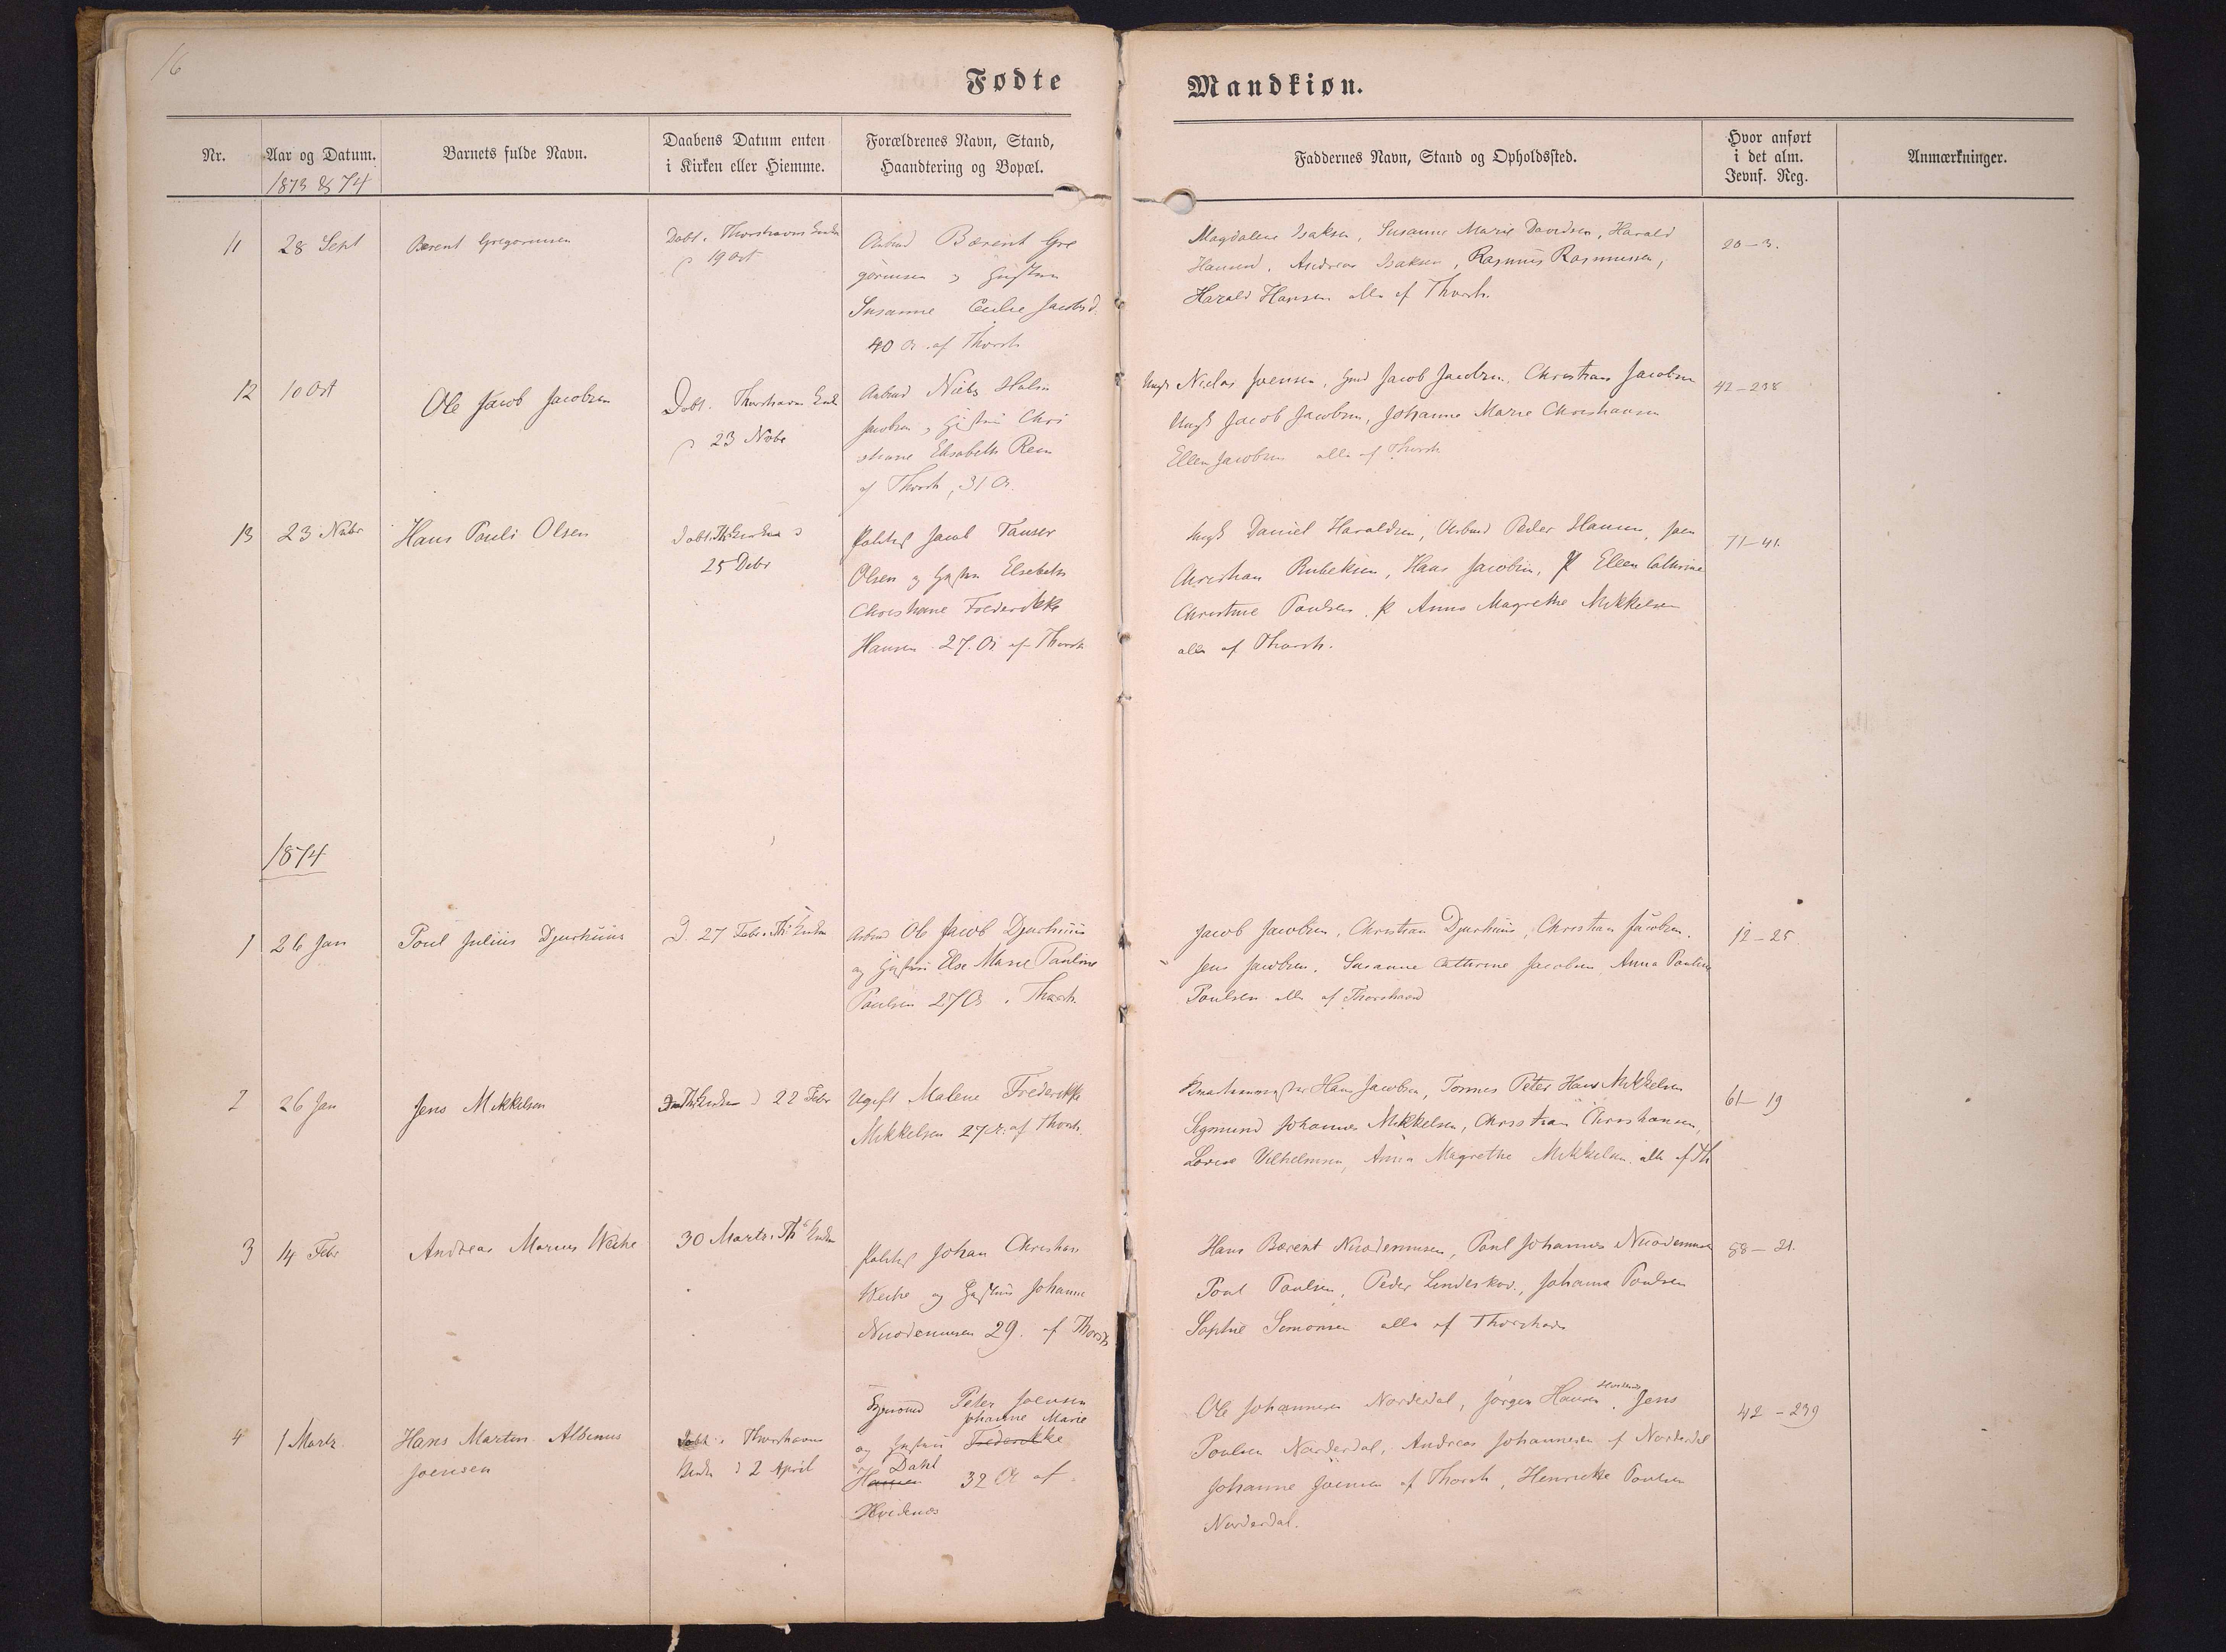 16
Fødte
Mandkiøn.
Nr.
Aar og Datum.
1873 & 74
Barnets fulde Navn.
Daabens Datum enten
i Kirken eller Hiemme.
Forældrenes Navn, Stand,
Haandtering og Bopæl.
Faddernes Navn, Stand og Opholdssted.
Hvor anført
i det alm.
Jevnf. Reg.
Anmærkninger.
11
28 Sept
Berent Gregoriusen
Døbt i Thorshavns
19 Oct
Bærent Gre
goriusen og Hustru
Susanne Cecilie Jacobsd.
40 Ar af Thorsh
Magdalene Isaksen, Susanne Marie Davidsen, Harald
Hansen, Andreas Isaksen, Rasmus Rasmussen,
Harald Hansen alle af Thorsh.
20-3.
12
10 Oct
Ole Jacob Jacobsen
Døbt i Thorshavns
23 Novbr
Niels
Jacobsen og Hustru Chri
stiane Elisabeth Rein
af Thorsh, 31 A.
Ungk Niclas Joensen, Jacob Jacobsen, Christian Jacobsen
Ungk Jacob Jacobsen, Johanne Marie Christiansen
Ellen Jacobsen alle af Thorsh
42-238
13
23 Novbr
Hans Pauli Olsen
Døbt i Th Kirken d
25 Debr
Jacob Tausen
Olsen og Hustru Elsebeth
Christiane Frederikke
Hansen 27 Ar af Thorsh
Ungk Daniel Haraldsen, Peder Hansen, Joen
Christian Rubeksen, Hans Jacobsen, P Ellen Cathrine
Christine Poulsen, P Anna Magrethe Mikkelsen
alle af Thorsh.
71-41.
1874
1
26 Jan
Poul Julius Djurhuus
D. 27 Febr i Th Kirken
Ole Jacob Djurhuus
og Hustru Else Marie Pauline
Paulsen 27 Ar i Thorsh
Jacob Jacobsen, Christian Djurhuus, Christian Jacobsen.
Jens Jacobsen, Susanne Cathrine Jacobsen, Anna Pauline
Poulsen alle af Thorshavn
12-25
2
26 Jan
Jens Mikkelsen
Th Kirken d 22 Febr
Ugift Malene Frederikke
Mikkelsen 27 Ar. af Thorsh.
Hans Jacobsen, Tormes Peter Hans Mikkelsen
Sigmund Johannes Mikkelsen, Christian Christiansen,
Lovise Vilhelmsen, Anna Magrethe Mikkelsen alle af Th
61-19
3
14 Febr
Andreas Marius Weihe
30 Marts i Th Kirken
Johan Christian
Weihe og Hustru Johanne
Nicodemusen 29. af Thorsh
Hans Berent Nicodemusen, Poul Johannes Nicodemusen
Poul Poulsen, Peder Lindeskov, Johanna Poulsen
Sophie Simonsen alle af Thorshavn
88-21.
4
1 Marts
Hans Martin Albinus
Joensen
Døbt i Thorshavns
Kirke d 2 April
Peter Joensen
Johanne Marie
og Hustru Frederikke
Dahl
Hansen 32 Ar af
Hvidenæs
Ole Johannesen Norderdal, Jørgen Hansen Hvidenæs, Jens
Poulsen Norderdal, Andreas Johannesen af Norderdal
Johanne Joensen af Thorsh, Henrikke Poulsen
Norderdal.
42-239